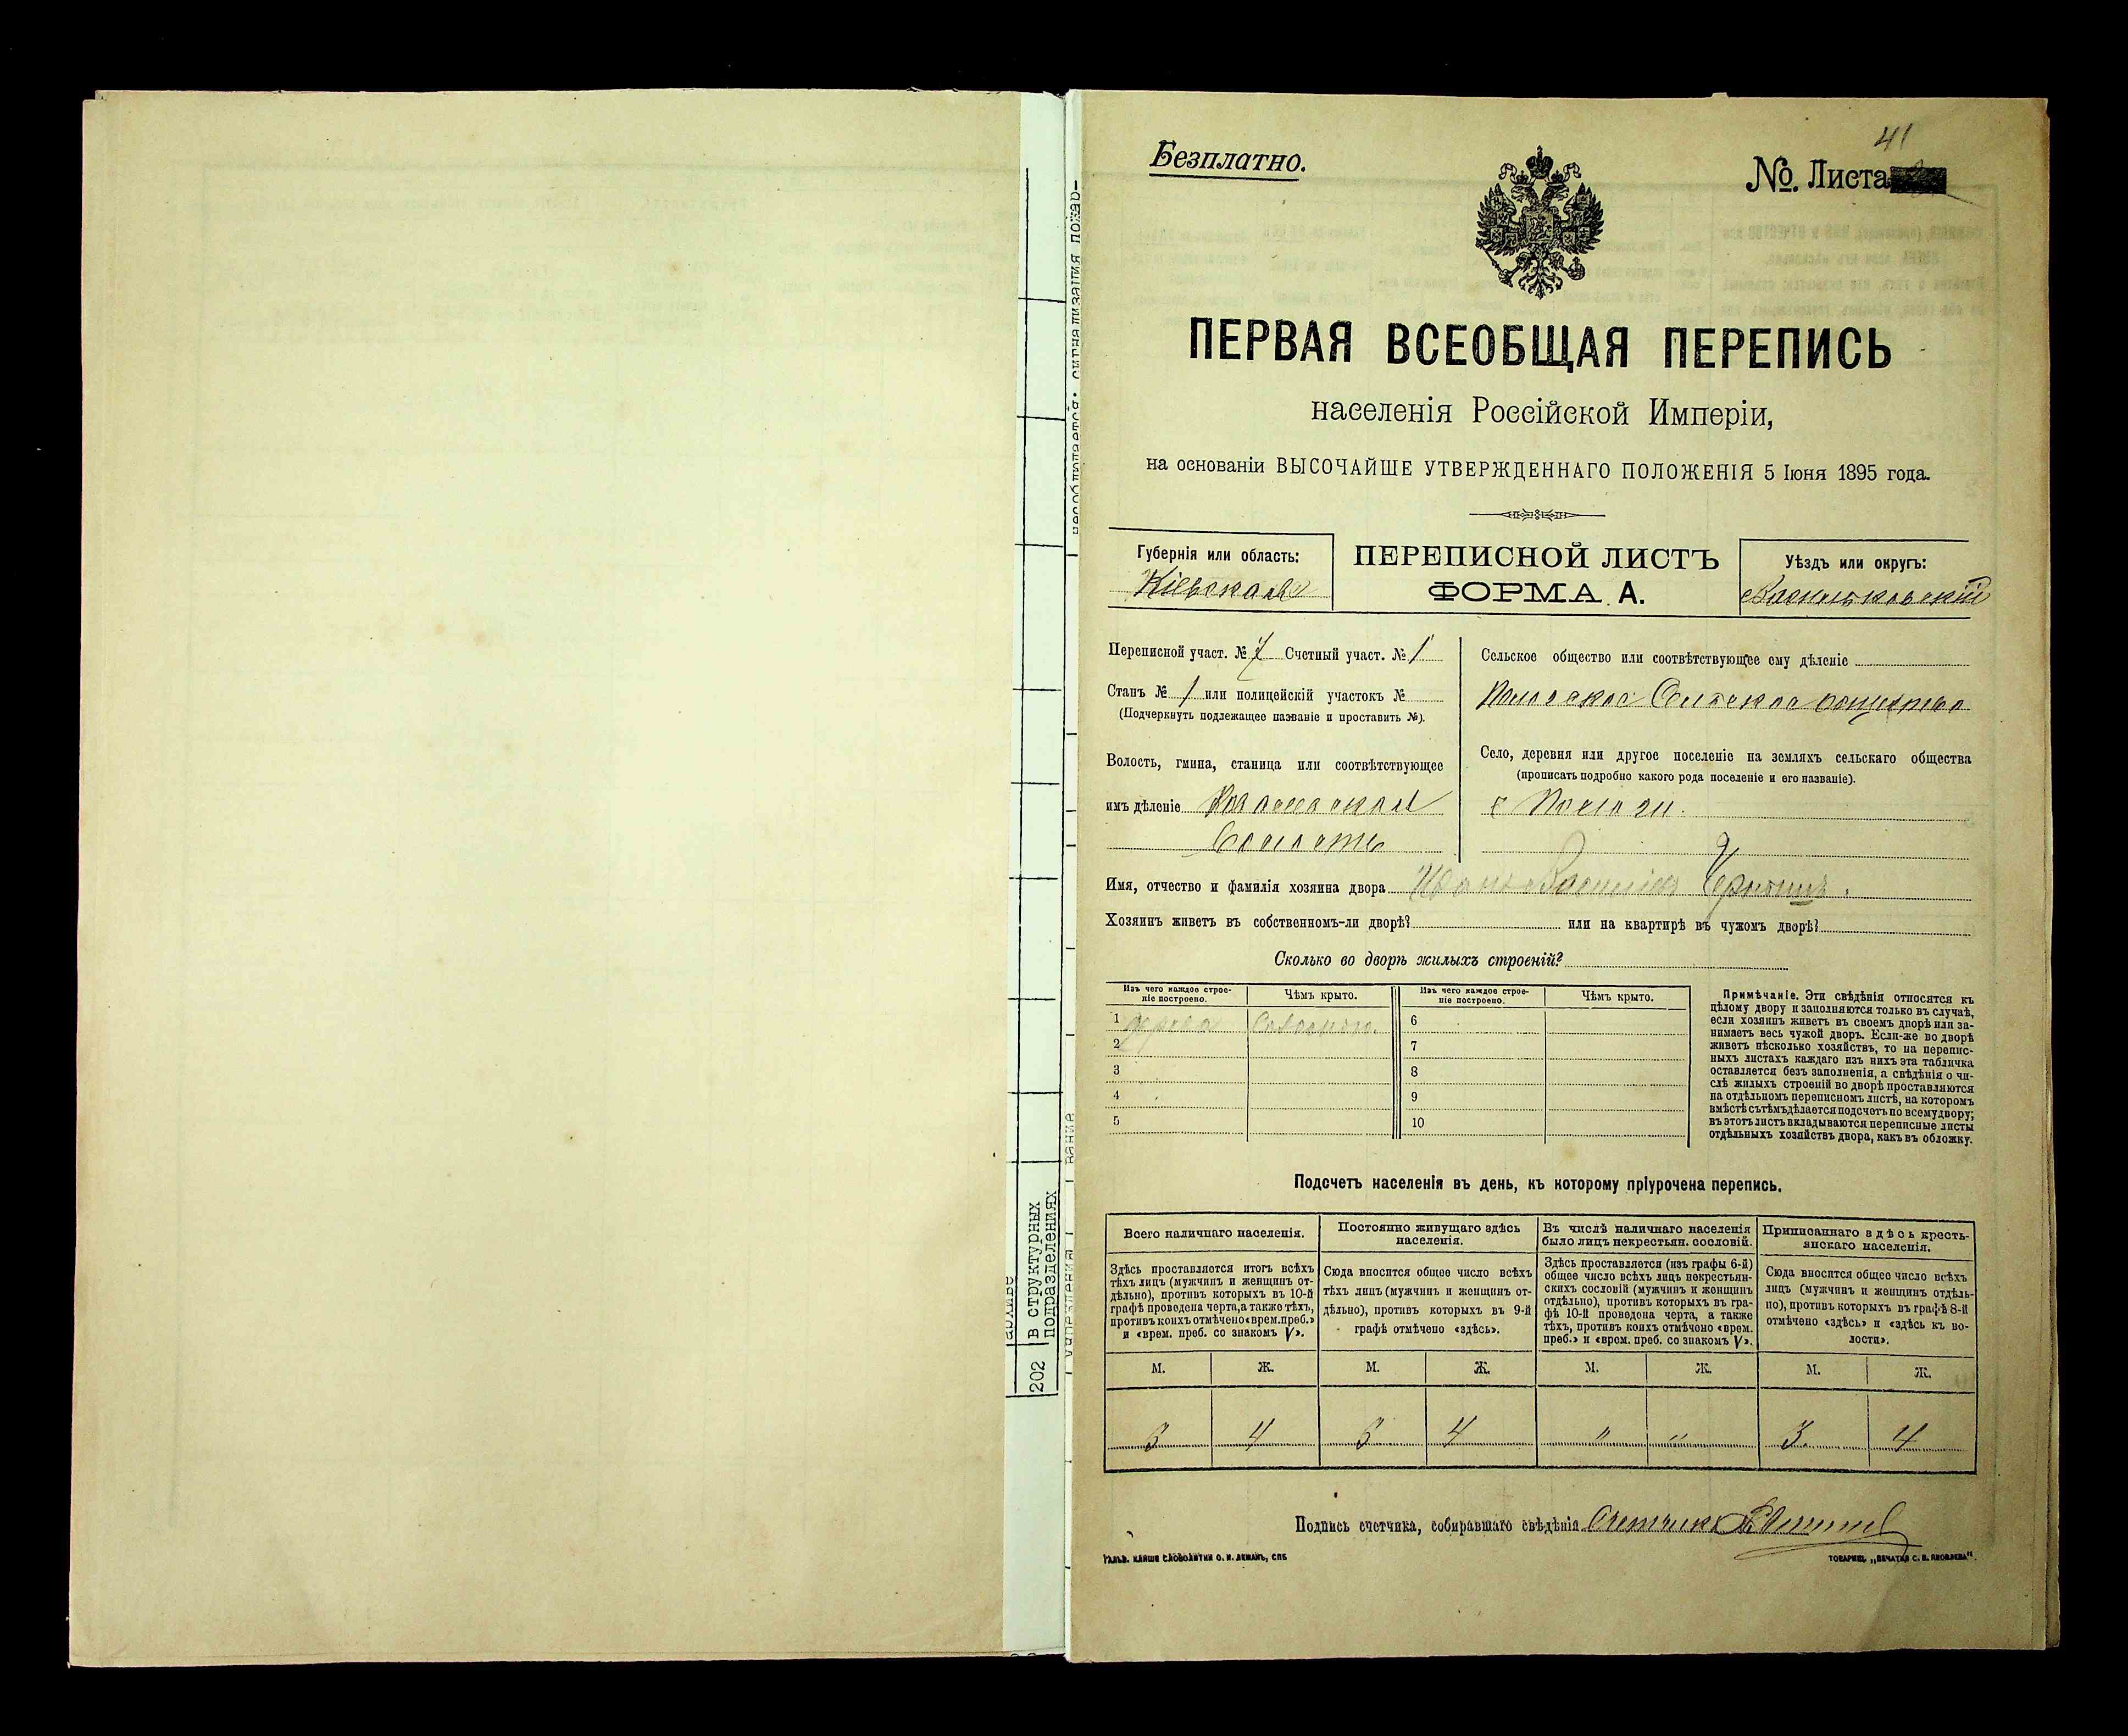 41
Безплатно.
№. Листа
ПЕРВАЯ ВСЕОБЩАЯ ПЕРЕПИСЬ
населенія Россійской Имперіи,
на основаніи ВЫСОЧАЙШЕ УТВЕРЖДЕННАГО ПОЛОЖЕНІЯ 5 Іюня 1895 года.
Губернія или область:
Кіевская
ПЕРЕПИСНОЙ ЛИСТЪ
ФОРМА А.
Уѣздъ или округъ:
Васильковскій
Переписной участ. № 7 Счетный участ. № 1
Станъ № 1 или полицейскій участокъ №
(Подчеркнуть подлежащее названіе и проставить №).
Волость, гмина, станица или соотвѣтствующее
имъ дѣленіе
Волость
Сельское общество или соотвѣтствующее ему дѣленіе
Сельское общество
Село, деревня или другое поселеніе на земляхъ сельскаго общества
(прописать подробно какого рода поселеніе и его названіе).
с Пологи.
Имя, отчество и фамилія хозяина двора Иванъ
Хозяинъ живетъ въ собственномъ-ли дворѣ? или на квартирѣ въ чужомъ дворѣ?
Сколько во дворѣ жилыхъ строеній?
Изъ чего каждое строе-
ніе построено.
Чѣмъ крыто.
Изъ чего каждое строе-
ніе построено.
Чѣмъ крыто.
1 6
2 7
3 8
4 9
5 10
Примѣчаніе. Эти свѣдѣнія относятся къ
цѣлому двору и заполняются только въ случаѣ,
если хозяинъ живетъ въ своемъ дворѣ или за-
нимаетъ весь чужой дворъ. Если-же во дворѣ
живетъ нѣсколько хозяйствъ, то на перепис-
ныхъ листахъ каждаго изъ нихъ эта табличка
оставляется безъ заполненія, а свѣдѣнія о чи-
слѣ жилыхъ строеній во дворѣ проставляются
на отдѣльномъ переписномъ листѣ, на которомъ
вмѣстѣ съ тѣмъ дѣлается подсчетъ по всему двору;
въ этотъ листъ вкладываются переписные листы
отдѣльныхъ хозяйствъ двора, какъ въ обложку.
Подсчетъ населенія въ день, къ которому пріурочена перепись.
Всего наличнаго населенія.
Здѣсь проставляется итогъ всѣхъ
тѣхъ лицъ (мужчинъ и женщинъ от-
дѣльно), противъ которыхъ въ 10-й
графѣ проведена черта, а также тѣхъ,
противъ коихъ отмѣчено «врем. преб.»
и «врем. преб. со знакомъ V».
Постоянно живущаго здѣсь
населенія.
Сюда вносится общее число всѣхъ
тѣхъ лицъ (мужчинъ и женщинъ от-
дѣльно), противъ которыхъ въ 9-й
графѣ отмѣчено «здѣсь».
Въ числѣ наличнаго населенія
было лицъ некрестьян. сословій.
Здѣсь проставляется (изъ графы 6-й)
общее число всѣхъ лицъ некрестьян-
скихъ сословій (мужчинъ и женщинъ
отдѣльно), противъ которыхъ въ гра-
фѣ 10-й проведена черта, а также
тѣхъ, противъ коихъ отмѣчено «врем.
преб.» и «врем. преб. со знакомъ V».
Приписаннаго здѣсь кресть-
янскаго населенія.
Сюда вносится общее число всѣхъ
лицъ (мужчинъ и женщинъ отдѣль-
но), противъ которыхъ въ графѣ 8-й
отмѣчено «здѣсь» и «здѣсь къ во-
лости».
М. Ж. М. Ж. М. Ж. М. Ж.
3 4 3 4 " " 3 4
Подпись счетчика, собиравшаго свѣдѣнія Счетчикъ
ГАЛЬВ. КЛИШЕ СЛОВОЛИТНИ О. И. ЛЕМАНЪ, СПБ
ТОВАРИЩ. „ПЕЧАТНЯ С. П. ЯКОВЛЕВА".
202
В структурных
подразделениях